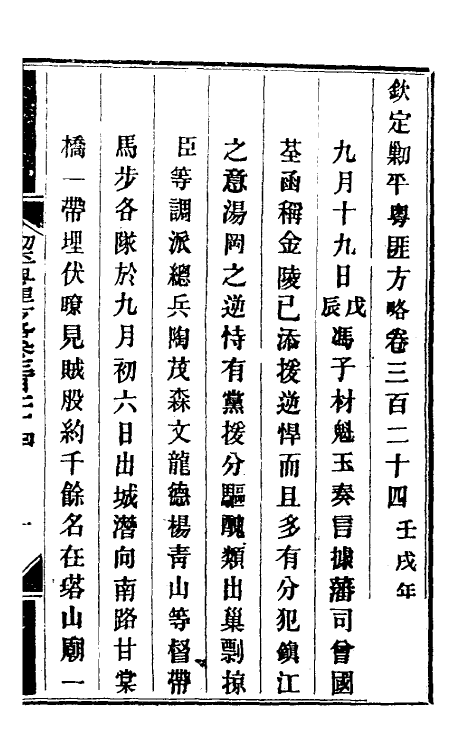 欽定勦平粵匪方略卷三百二十四壬戌年
九月十九日戊辰馮子材魁玉奏言據藩司曾國
荃函稱金陵已添援逆悍而且多有分犯鎮江
之意湯岡之逆恃有黨援分驅醜類出巢剽掠
臣等調派總兵陶茂森文龍德楊青山等督帶
馬步各隊於九月初六日出城潛向南路甘棠
橋一帶埋伏瞭見賊股約千餘名在塔山廟一